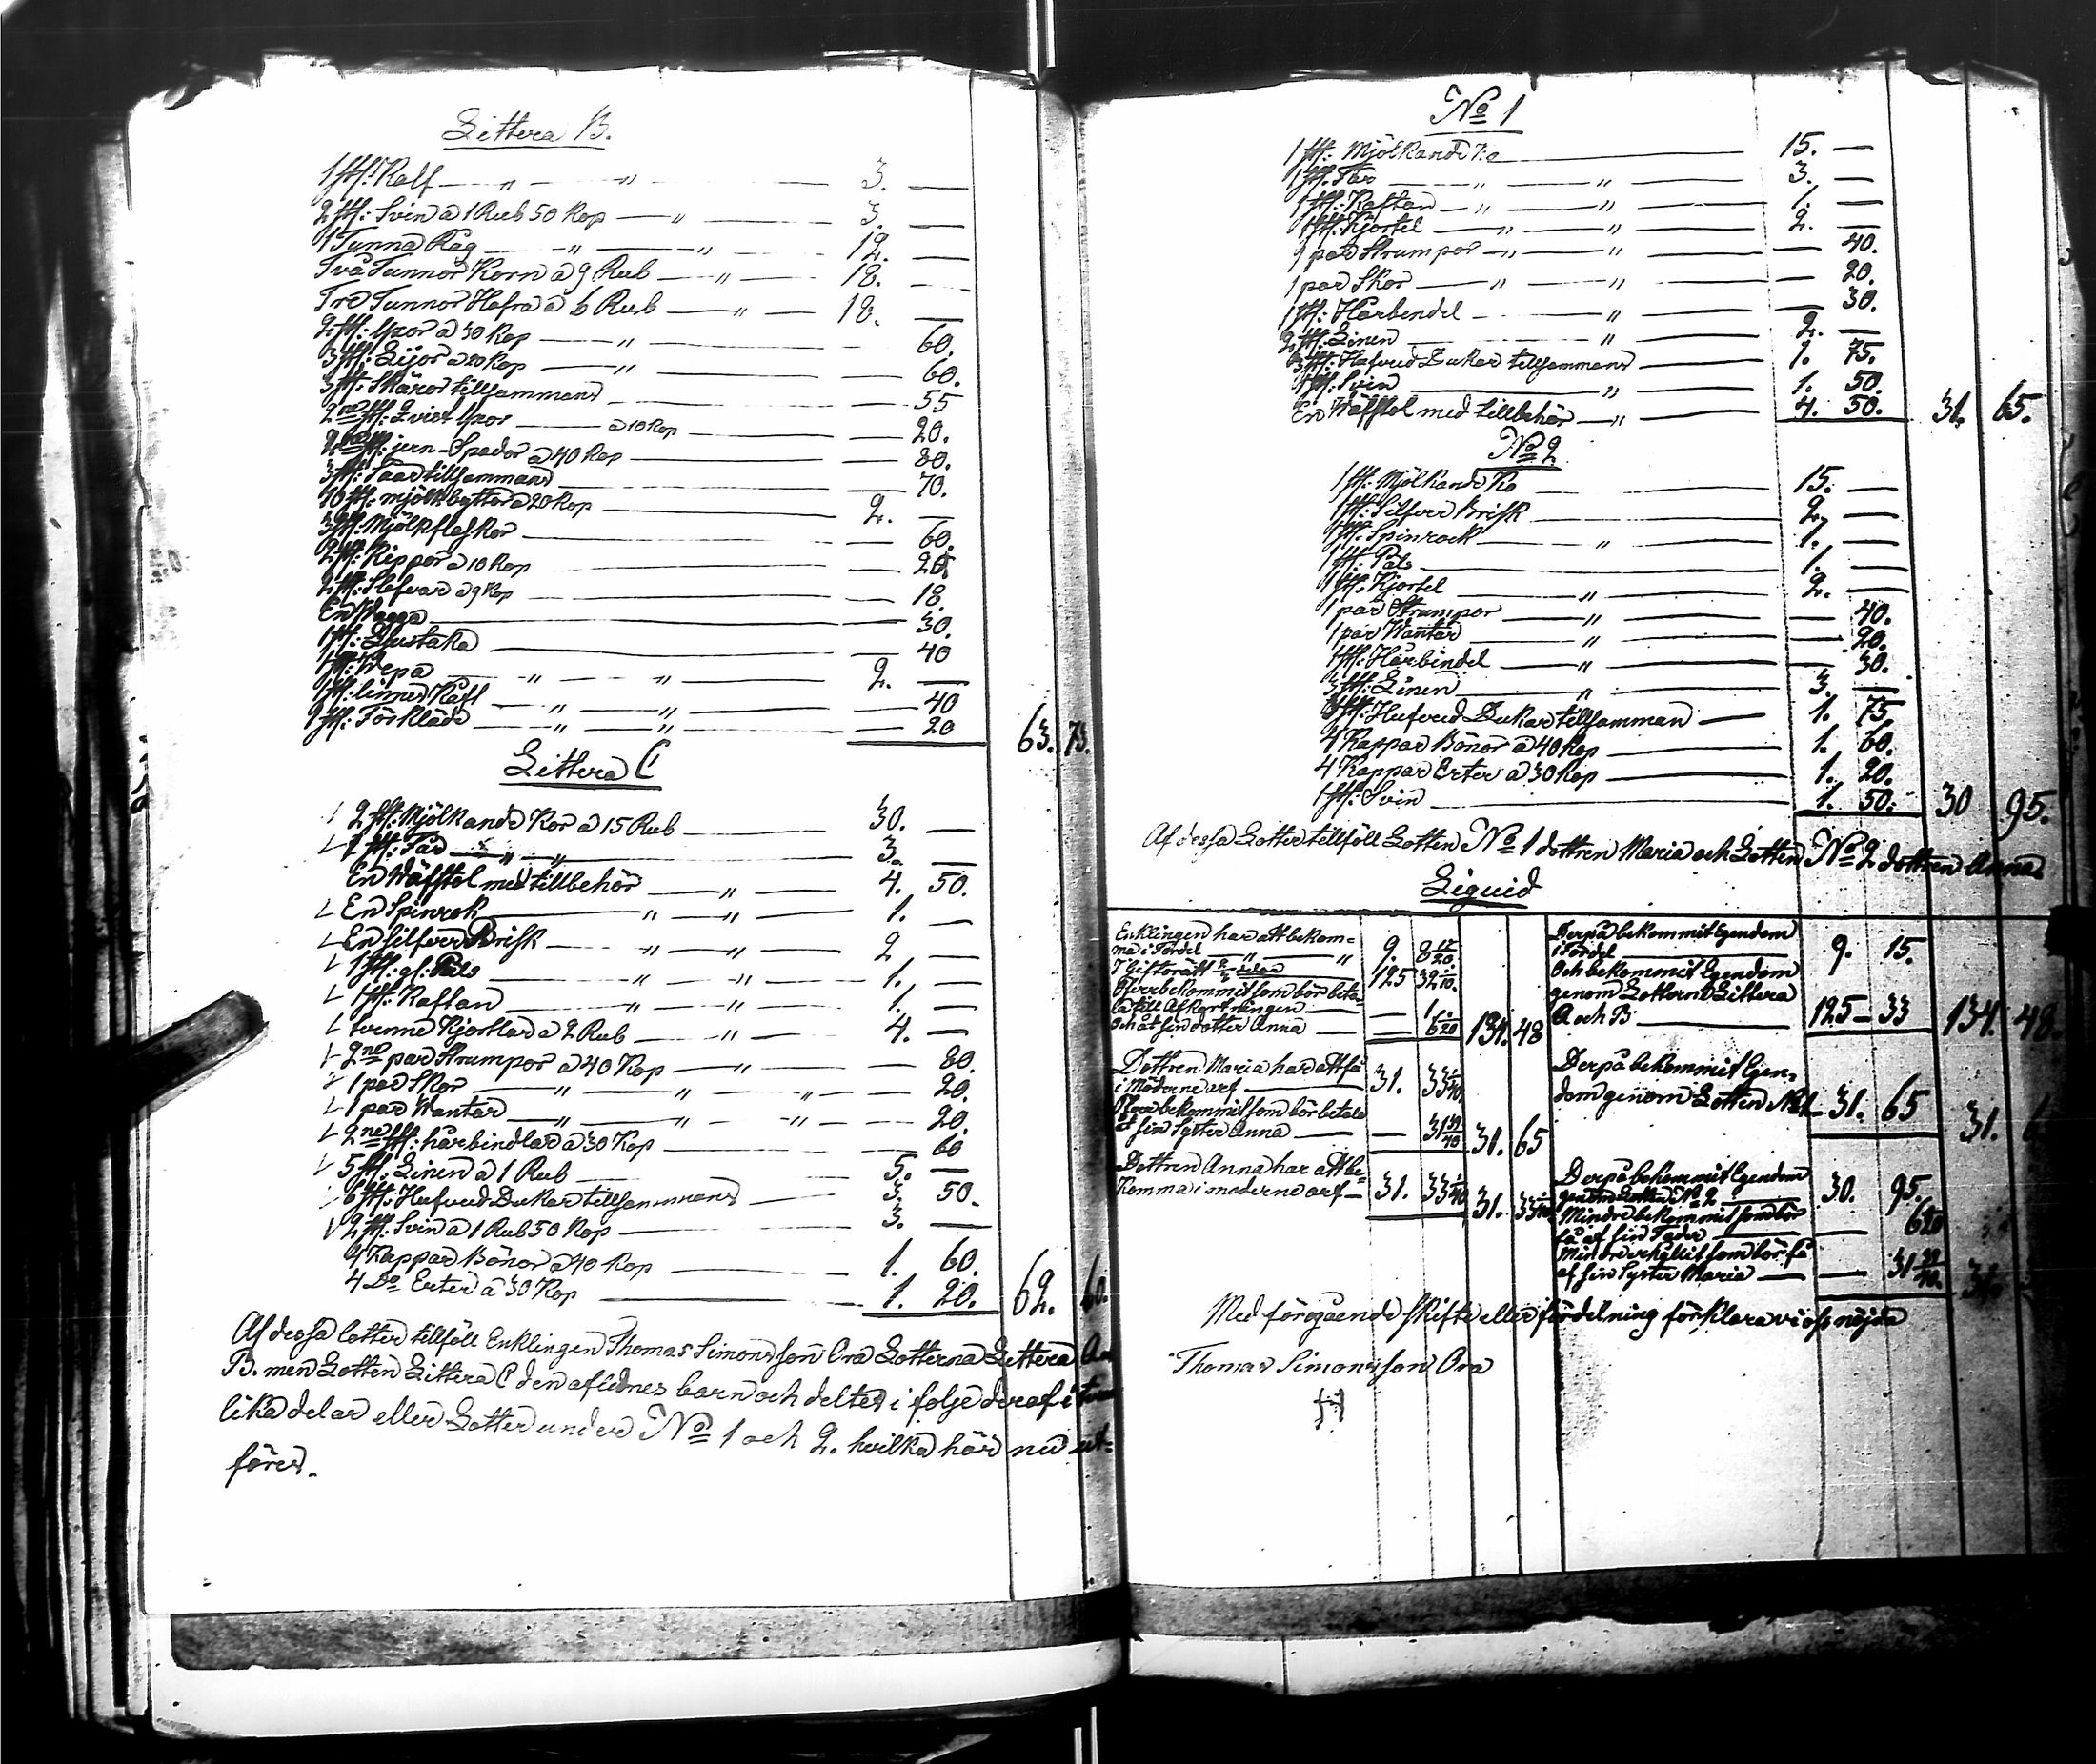 Littera B.
1 st: Kalf — " — " — 3. —
2 st: Svin a 1 Rub 50 Kop — " — 3. —
1 Tunna Råg — " — " — 12. —
Två Tunnor Korn a 9 Rub — " — 18. —
Tre Tunnor Hafra a 6 Rub — " — 18. —
2 st: Yxor a 30 Kop — " — 60.
3 st: Lijor a 20 Kop — " — 60.
3 st: Skäror tillsammans — 55
2ne st: Qvist Yxor — a 10 Kop — 20.
2ne st: jern-Spador a 40 Kop — 80.
3 st: Saar tillsammans — 70.
10 st: mjölkbyttor a 20 Kop — 2. —
3 st: Mjölkfleskor — 60.
2 st: Kippor a 10 Kop — 20.
2 st: Slefvar a 9 Kop — 18.
En Wagga — 30.
1 st: Ljustaka — 40
1 st: Wepa — " — " — 2. —
1 st: linnes Kast — " — " — 40
1 st: Förkläde — " — " — 20 63. 73.
Littera C
2 st: Mjölkande Kor a 15 Rub — 30. —
1 st: Får — " — " — 3. —
En Wäfstol med tillbehör — " — 4. 50.
En Spinrok — " — " — 1. —
En silfver Brisk — " — " — 2 —
1 st: gl: Päls — " — " — 1. —
1 st: Kaftan — " — " — 1. —
tvenne Kjortlar a 2 Rub — " — 4. —
2ne par Strumpor a 40 Kop — " — 80.
1 par Skor — " — " — " — 20.
1 par Wantar — " — " — " — 20.
2ne st: hårbindlar a 30 Kop — 60
5 st: Linen a 1 Rub — 5. —
6 st: Hufvud Dukar tillsammans — 3. 50.
2 st: Svin a 1 Rub 50 Kop — 3. —
4 Kappar Bönor a 40 Kop — 1. 60.
4 Do Erter a 30 Kop — 1. 20. 62. 60.
Af dessa lotter tillföll Enklingen Thomas Simonsson Ora Lotterna Littera A
B. men Lotten Littera C den aflidnes barn och deltes i folje deraf i
lika delar eller Lotter under No 1 och 2. hvilka här nu ut-
föres.
No 1
1 st: Mjölkande Ko — 15. —
1 st: Får — " — " — 3. —
1 st: Kaftan — " — " — 1. —
1 st: Kjortel — " — " — 2. —
1 par Strumpor — " — " — 40.
1 par Skor — " — " — 20.
1 st: Hårbendel — " — 30.
2 st: Linen — " — 2. —
3 st: Hufvud Dukar tillsammans — 1. 75.
1 st: Svin — " — 1. 50.
En Wäfstol med tillbehör — " — 4. 50. 31. 65.
No 2
1 st: Mjölkande Ko — 15. —
1 st: Silfver Brisk — 2. —
1 st: Spinrock — " — 1. —
1 st: Päls — 1. —
1 st: Kjortel — " — 2. —
1 par Strumpor — " — 40.
1 par Wantar — " — 20.
1 st: Hårbindel — " — 30.
3 st: Linen — " — 3. —
3 st: Hufvud Dukar tillsamman — 1. 75.
4 Kappar Bönor a 40 Kop — 1. 60.
4 Kappar Erter a 30 Kop — 1. 20.
1 st: Svin — 1. 50. 30 95.
Af dessa Lotter tillföll Lotten No 1 dottren Maria och Lotten No 2 dottren Anna
Liquid
Enklingen har att bekom-
ma i Fördel " " 9. 8 17/20.
I Giftorätt 2/3 delar 125 32 1/10.
Öfverbekommit som bör beta-
la till Afkortningen — 1.
och åt sin dotter Anna — 6 1/20 134. 48
Dottren Maria har att få
i Möderne arf — 31. 33 1/40.
Öfverbekommit som bör betala
åt sin Syster Anna — 31 39/40 31. 65
Dottren Anna har att be-
komma i moderne arf — 31. 33 1/40 31. 33 1/40
Derpå bekommit Egendom
i Fördel — 9. 15.
Och bekommit Egendom
genom Lotterne Littera
A och B — 125 — 33 134. 48.
Derpå bekommit Egen-
dom genom Lotten No 1 — 31. 65 31.
Derpå bekommit Egendom
genom Lotten No 2 — 30. 95.
Mindre bekommit som bör
få af sin Fader — 6 1/20
Mindre erhållit som bör få
af sin Syster Maria — 31 39/40. 31.
Med föregående skifte eller fördelning förklara vi oss nöjda
Thomas Simonsson Ora